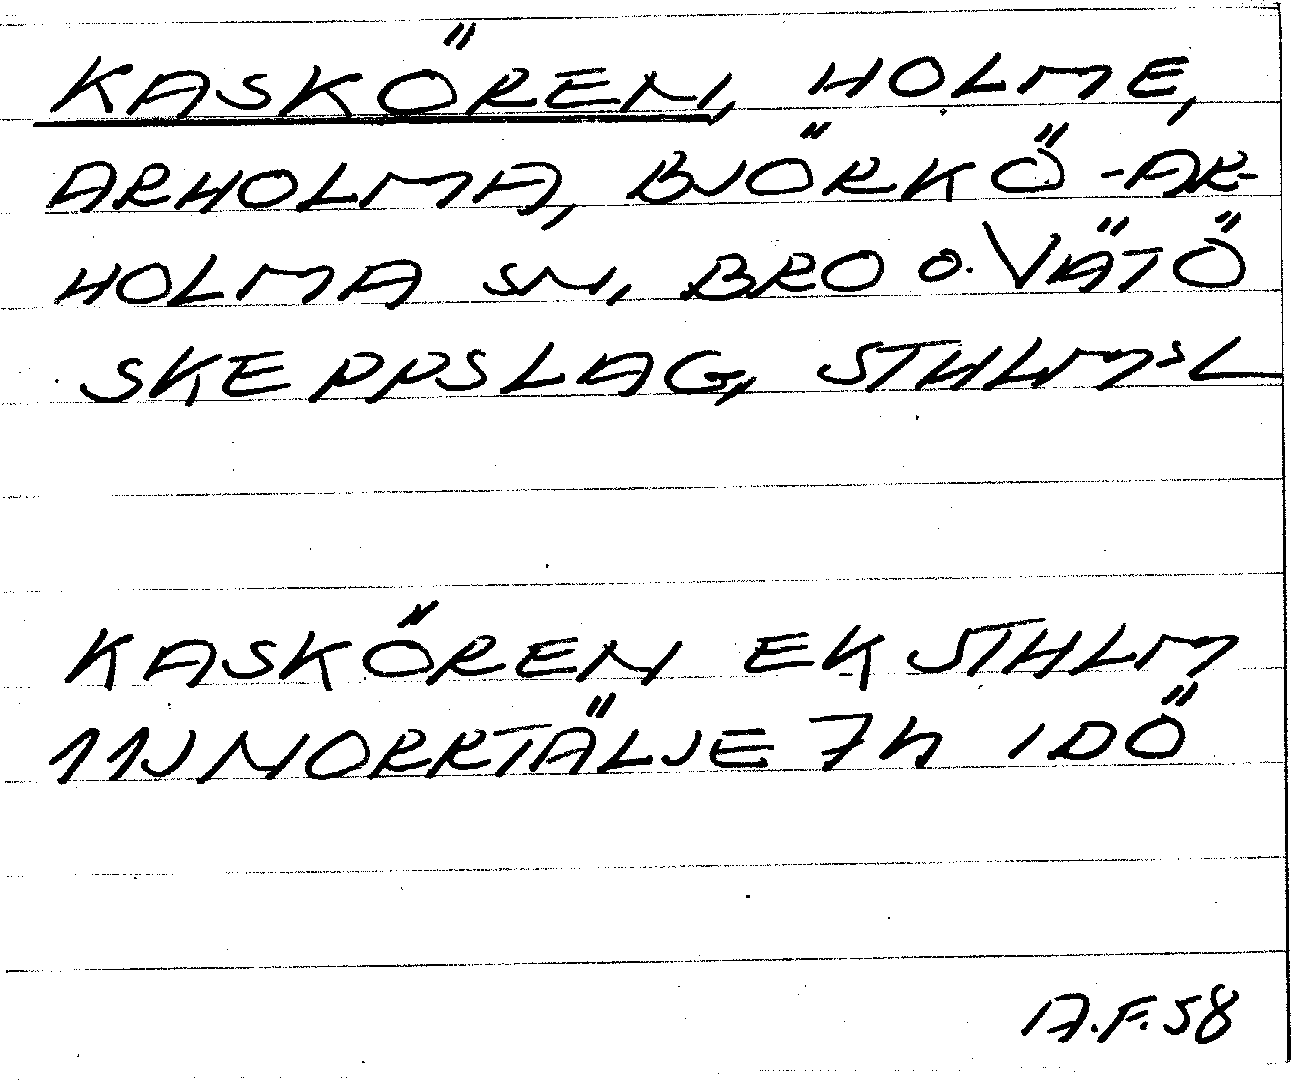 KASKÖREN, HOLME,
ARHOLMA, BJÖRKÖ-AR-
HOLMA SN, BRO O. VÄTÖ
SKEPPSLAG, STHLMSL
KASKÖREN EK STHLM
11J NORRTÄLJE 7h IDÖ
A.F.58